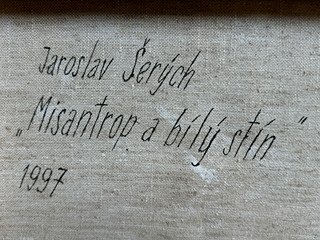 Jaroslav Šerých
„Misantrop a bílý stín"
1997